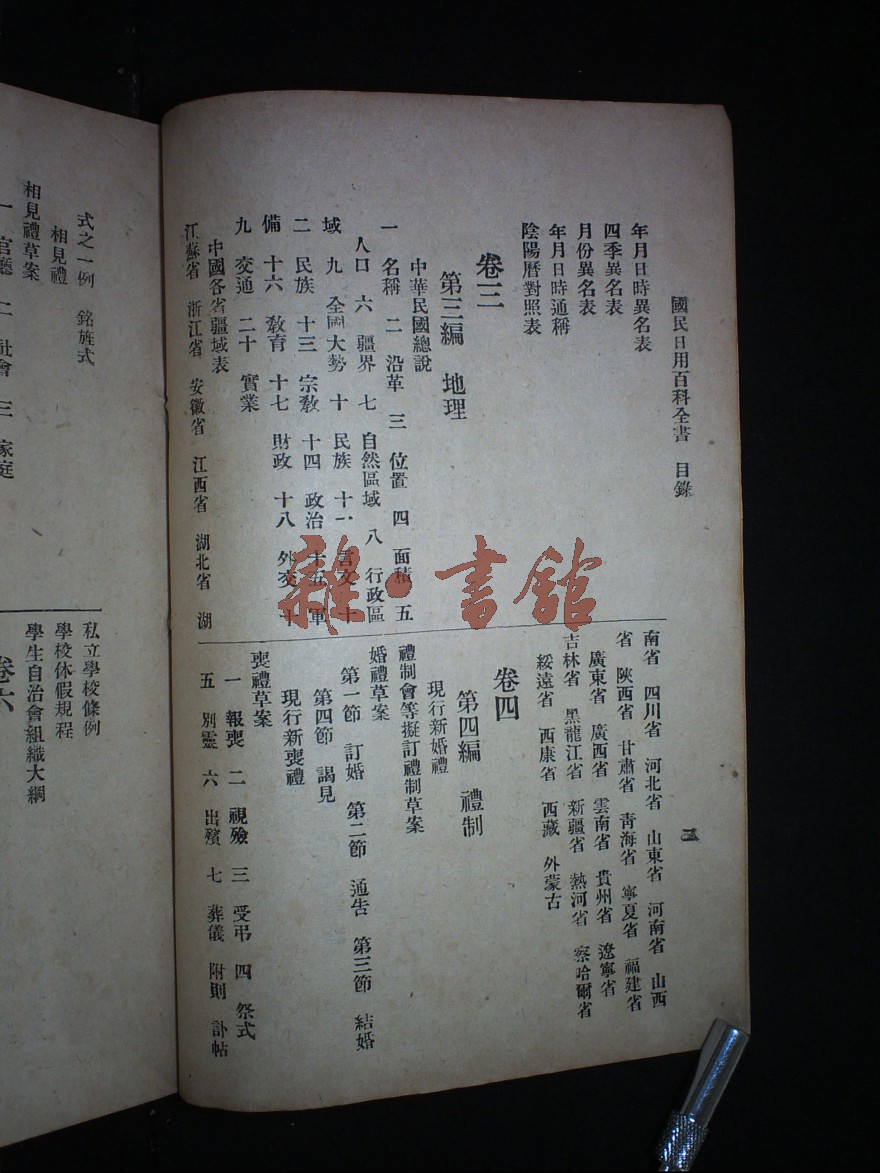 國民日用百科全書 目錄
三
年月日時異名表
四季異名表
月份異名表
年月日時通稱
陰陽曆對照表
卷三
第三編 地理
中華民國總說
一 名稱 二 沿革 三 位置 四 面積 五
人口 六 疆界 七 自然區域 八 行政區
域 九 全國大勢 十 民族 十一 言文 十
二 民族 十三 宗教 十四 政治 十五 軍
備 十六 教育 十七 財政 十八 外交 十
九 交通 二十 實業
中國各省疆域表
江蘇省 浙江省 安徽省 江西省 湖北省 湖
南省 四川省 河北省 山東省 河南省 山西
省 陝西省 甘肅省 青海省 寧夏省 福建省
廣東省 廣西省 雲南省 貴州省 遼寧省
吉林省 黑龍江省 新疆省 熱河省 察哈爾省
綏遠省 西康省 西藏 外蒙古
卷四
第四編 禮制
現行新婚禮
禮制會等擬訂禮制草案
婚禮草案
第一節 訂婚 第二節 通告 第三節 結婚
第四節 謁見
現行新喪禮
喪禮草案
一 報喪 二 視殮 三 受弔 四 祭式
五 別靈 六 出殯 七 葬儀 附則 訃帖
式之一例 銘旌式
相見禮
相見禮草案
一 官廳 二 社會 三 家庭
私立學校條例
學校休假規程
學生自治會組織大綱
卷六
雜·書館